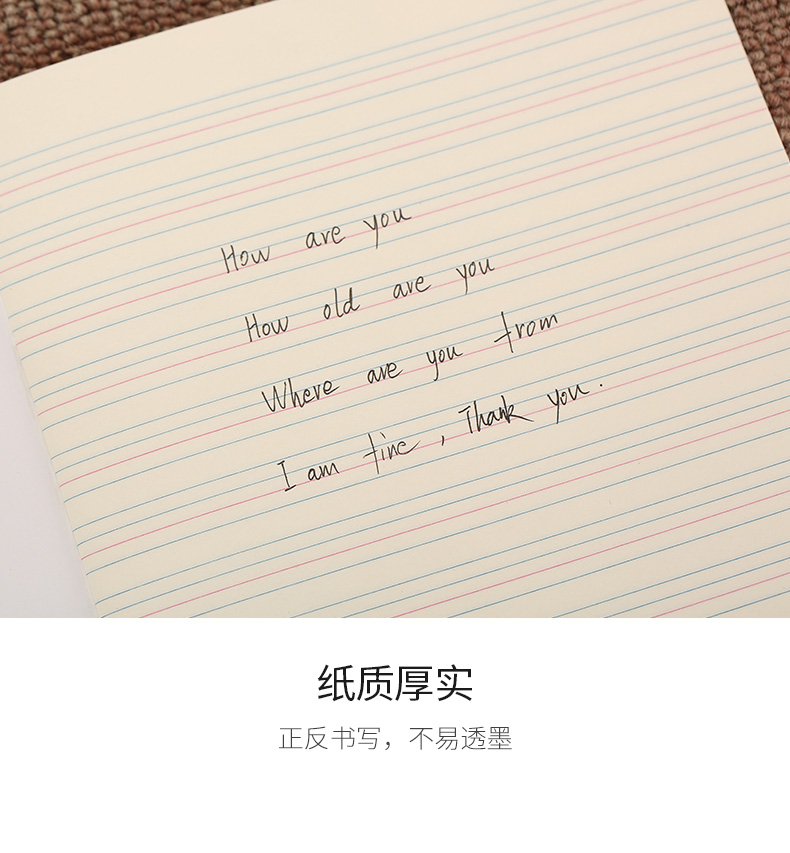 How are you
How old are you
Where are you from
I am fine , Thank you .
纸质厚实
正反书写，不易透墨